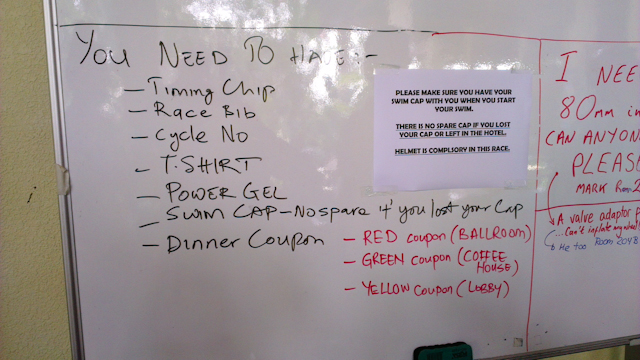 YOU NEED TO HAVE:-
— Timing Chip
— Race Bib
— Cycle No
— T-SHIRT
— POWER GEL
— SWIM CAP - No spare if you lost your Cap
— Dinner Coupon
— RED coupon (BALLROOM)
— GREEN coupon (COFFEE
HOUSE)
— YELLOW coupon (LOBBY)
PLEASE MAKE SURE YOU HAVE YOUR
SWIM CAP WITH YOU WHEN YOU START
YOUR SWIM.
THERE IS NO SPARE CAP IF YOU LOST
YOUR CAP OR LEFT IN THE HOTEL.
HELMET IS COMPLSORY IN THIS RACE.
I NEE
80mm in
CAN ANYON
PLEASE
MARK Rm 2
A valve adaptor
...can't inflate
He too Room 2048